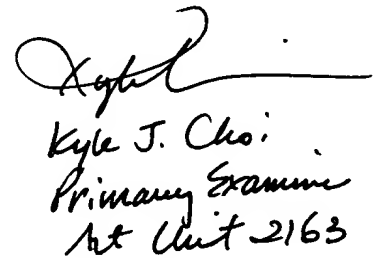 Kyle
Kyle J. Choi
Primary Examiner
Art Unit 2163